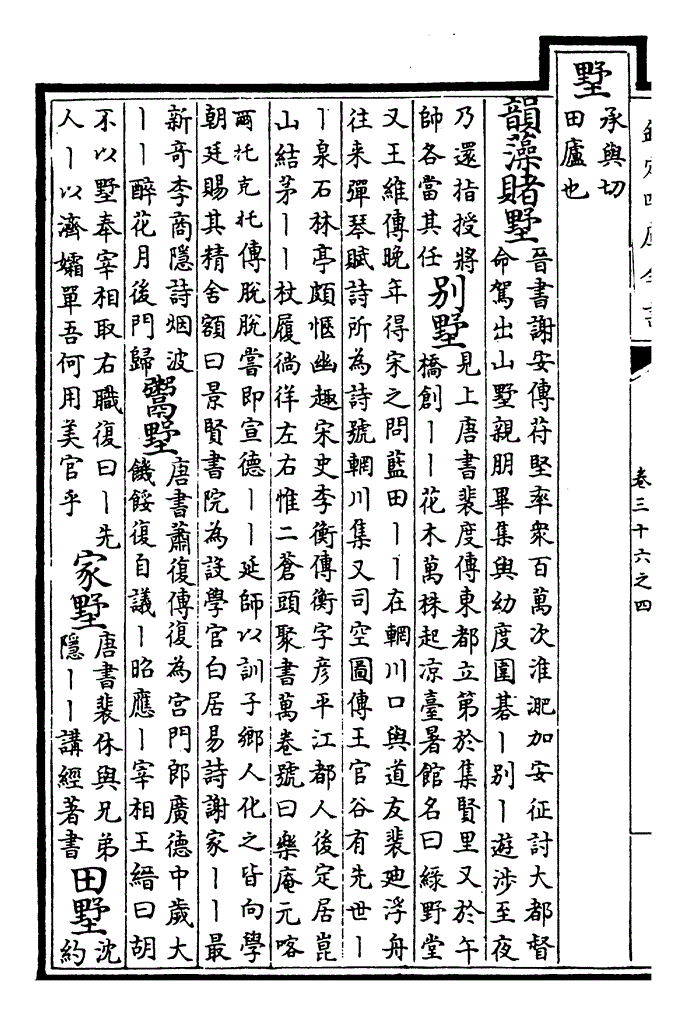 欽定四庫全書
卷三十六之四
墅
承與切
田廬也
韻藻賭墅
晉書謝安傳苻堅率衆百萬次淮淝加安征討大都督
命駕出山墅親朋畢集與幼度圍碁丨別丨遊涉至夜
乃還指授將
帥各當其任
別墅
見上唐書裴度傳東都立第於集賢里又於午
橋創丨丨花木萬株起凉臺暑館名曰綠野堂
又王維傳晚年得宋之問藍田丨丨在輞川口與道友裴廸浮舟
往来彈琴賦詩所為詩號輞川集又司空圖傳王官谷有先世丨
丨泉石林亭頗愜幽趣宋史李衡傳衡字彥平江都人後定居崑
山結茅丨丨杖履徜徉左右惟二蒼頭聚書萬卷號曰樂庵元喀
爾托克托傳脫脫嘗即宣德丨丨延師以訓子鄉人化之皆向學
朝廷賜其精舍額曰景賢書院為設學官白居易詩謝家丨丨最
新奇李商隱詩烟波
丨丨醉花月後門歸
鬻墅
唐書蕭復傳復為宫門郎廣德中歲大
饑餒復自議丨昭應丨宰相王縉曰胡
不以墅奉宰相取右職復曰丨先
人丨以濟孀單吾何用美官乎
家墅
唐書裴休與兄弟
隱丨丨講經著書
田墅
沈
約